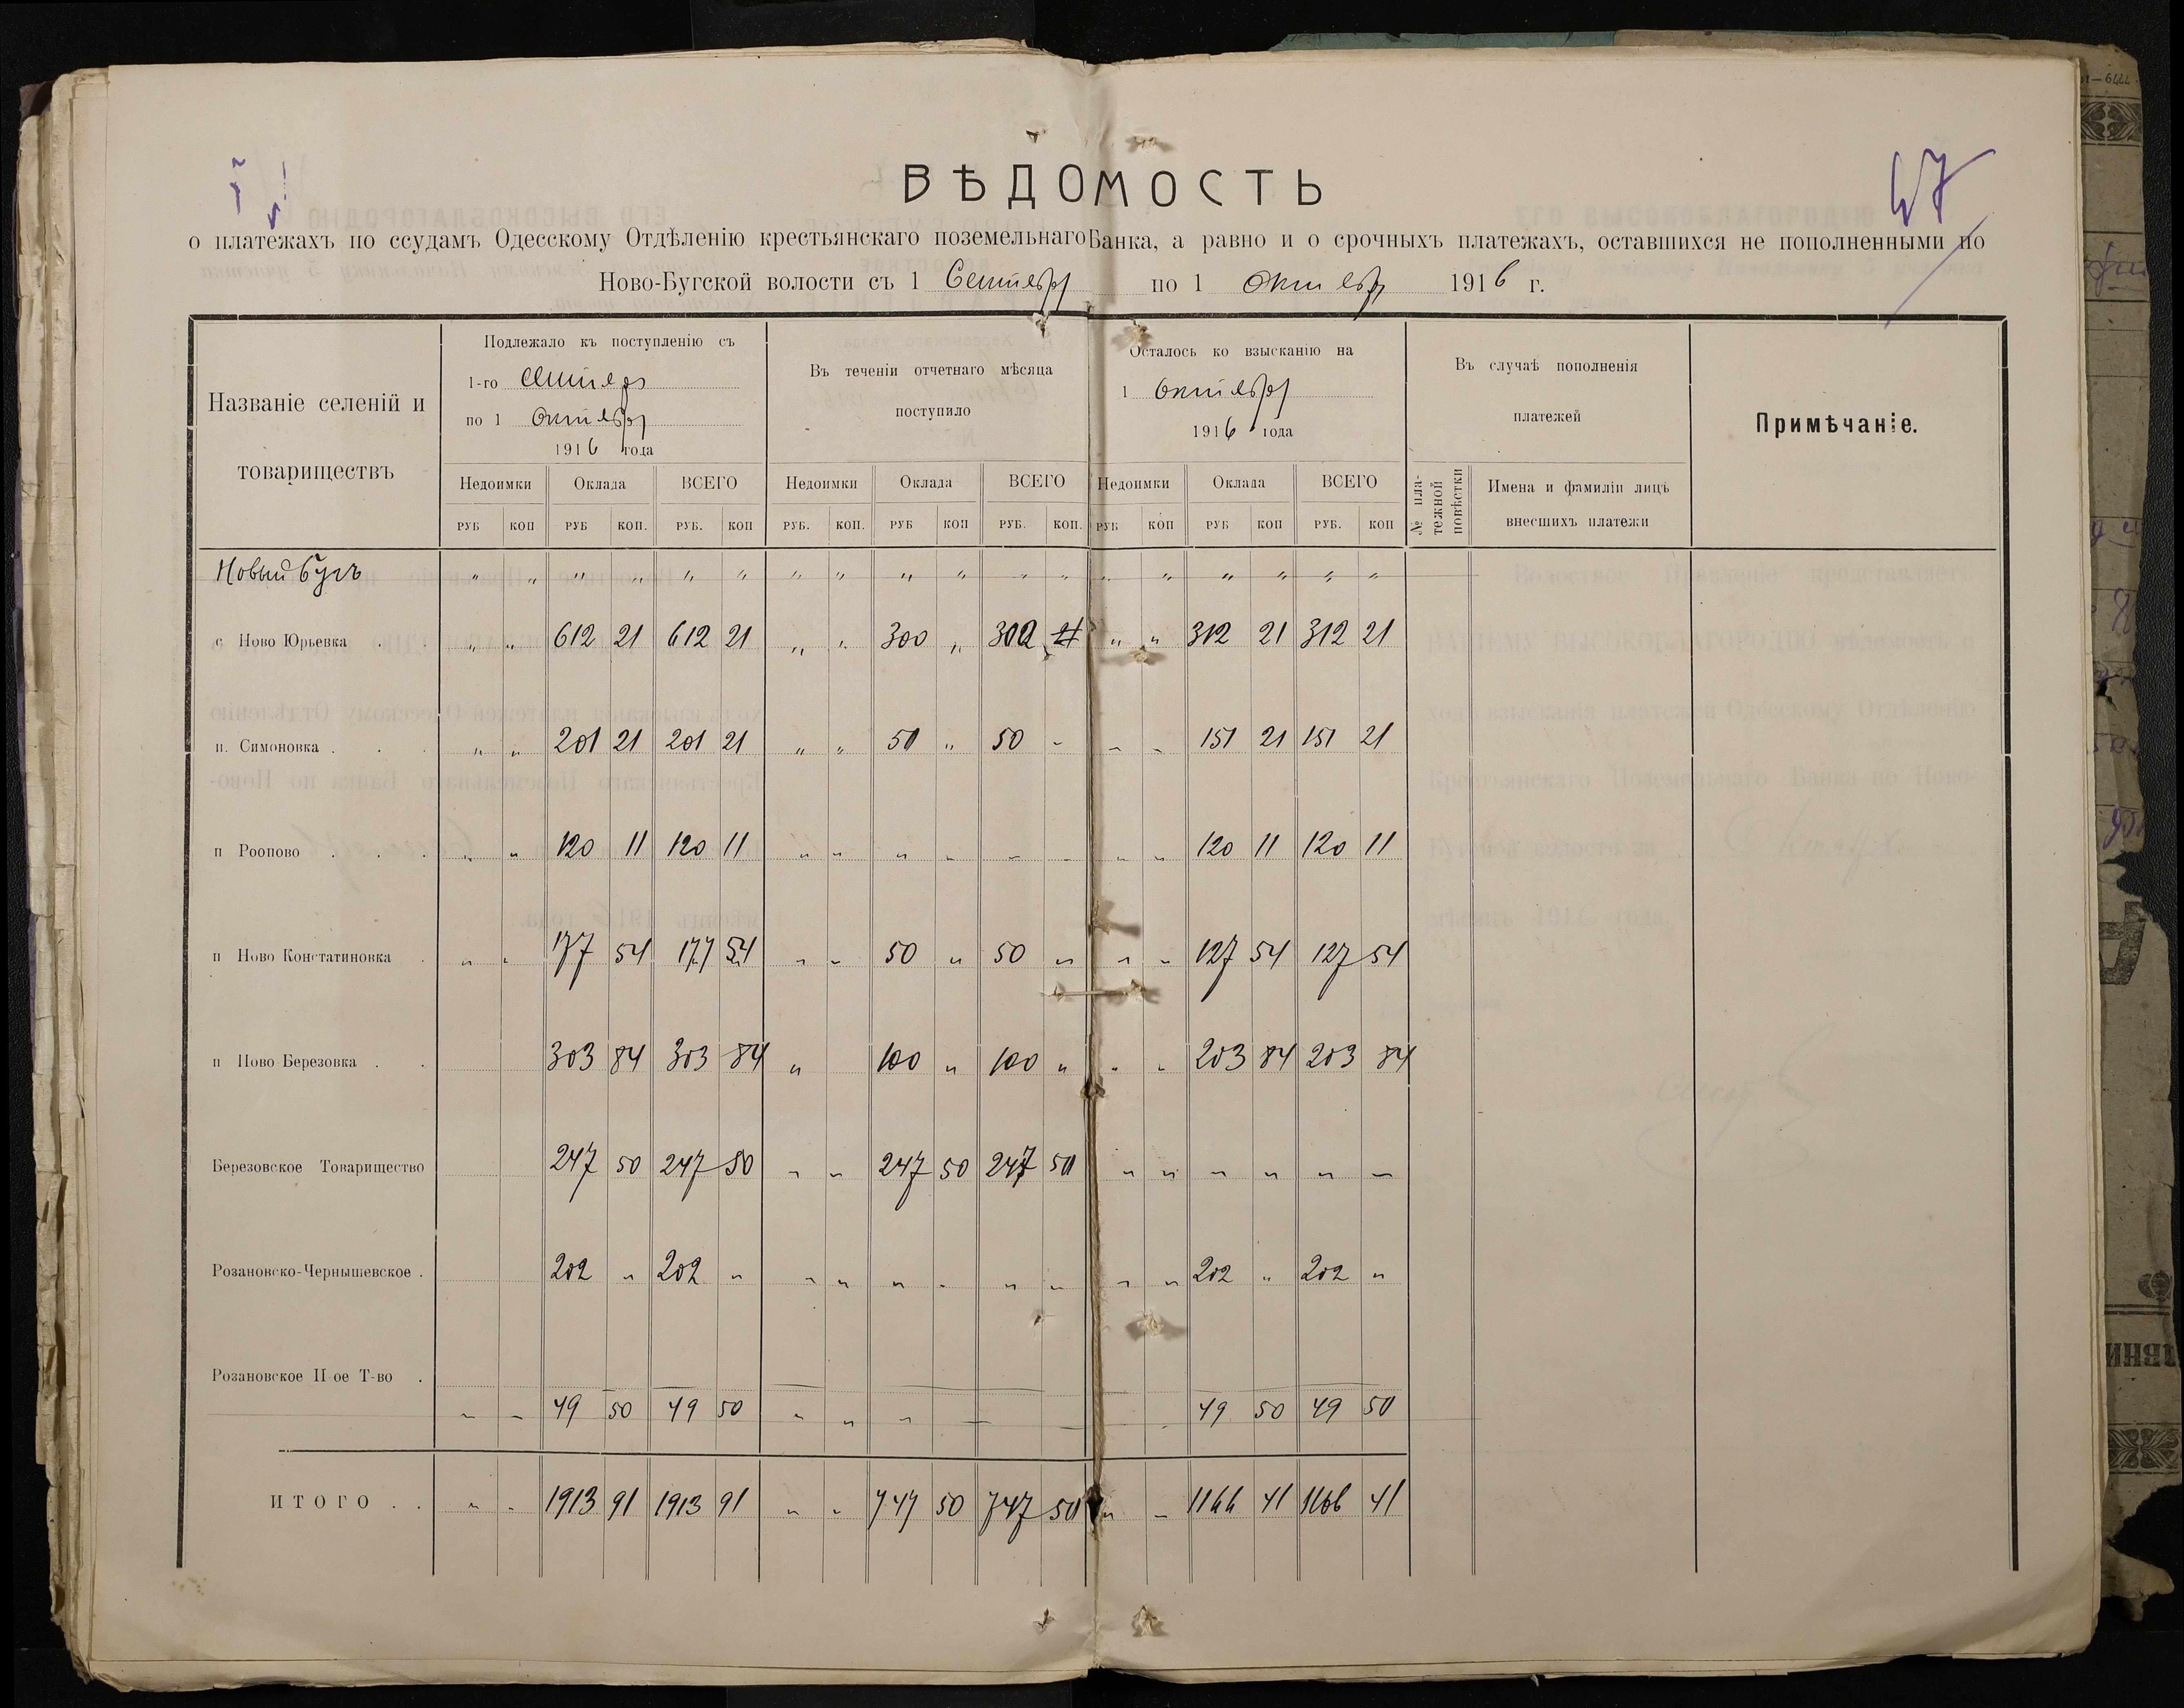 47
ВѢДОМОСТЬ
о платежахъ по ссудамъ Одесскому Отдѣленію крестьянскаго поземельнаго Банка, а равно и о срочныхъ платежахъ, оставшихся не пополненными по
Ново-Бугской волости съ 1 Сентября по 1 Октября 1916 г.
Названіе селеній и товариществъ
Подлежало къ поступленію съ
1-го Сентября
по 1 Октября
1916 года
Въ теченіи отчетнаго мѣсяца
поступило
Осталось ко взысканію на
1 Октября
1916 года
Въ случаѣ пополненія
платежей
Примѣчаніе.
Недоимки Оклада ВСЕГО Недоимки Оклада ВСЕГО Недоимки Оклада ВСЕГО
№ пла-
тежной
повѣстки
Имена и фамиліи лицъ
внесшихъ платежи
РУБ КОП РУБ КОП. РУБ. КОП РУБ. КОП. РУБ КОП РУБ. КОП. РУБ КОП РУБ КОП РУБ. КОП
Новый Бугъ " " " " " " " " " " " " " " " " " "
с Ново Юрьевка . . " " 612 21 612 21 " " 300 " 300 21 " " 312 21 312 21
п. Симоновка . . . " " 201 21 201 21 " " 50 " 50 " " " 151 21 151 21
п Роопово . . . " " 120 11 120 11 " " " " " " " " 120 11 120 11
п Ново Констатиновка . " " 177 54 177 54 " " 50 " 50 " " " 127 54 127 54
п Ново Березовка . . 303 84 303 84 " 100 " 100 " " " 203 84 203 84
Березовское Товарищество 247 50 247 50 " " 247 50 247 50 " " " " " "
Розановско-Чернышевское . 202 " 202 " " " " " " " " " 202 " 202 "
Розановское II-ое Т-во .
" " 49 50 49 50 " " " 49 50 49 50
ИТОГО . . " " 1913 91 1913 91 " " 747 50 747 50 " " 1166 41 1166 41